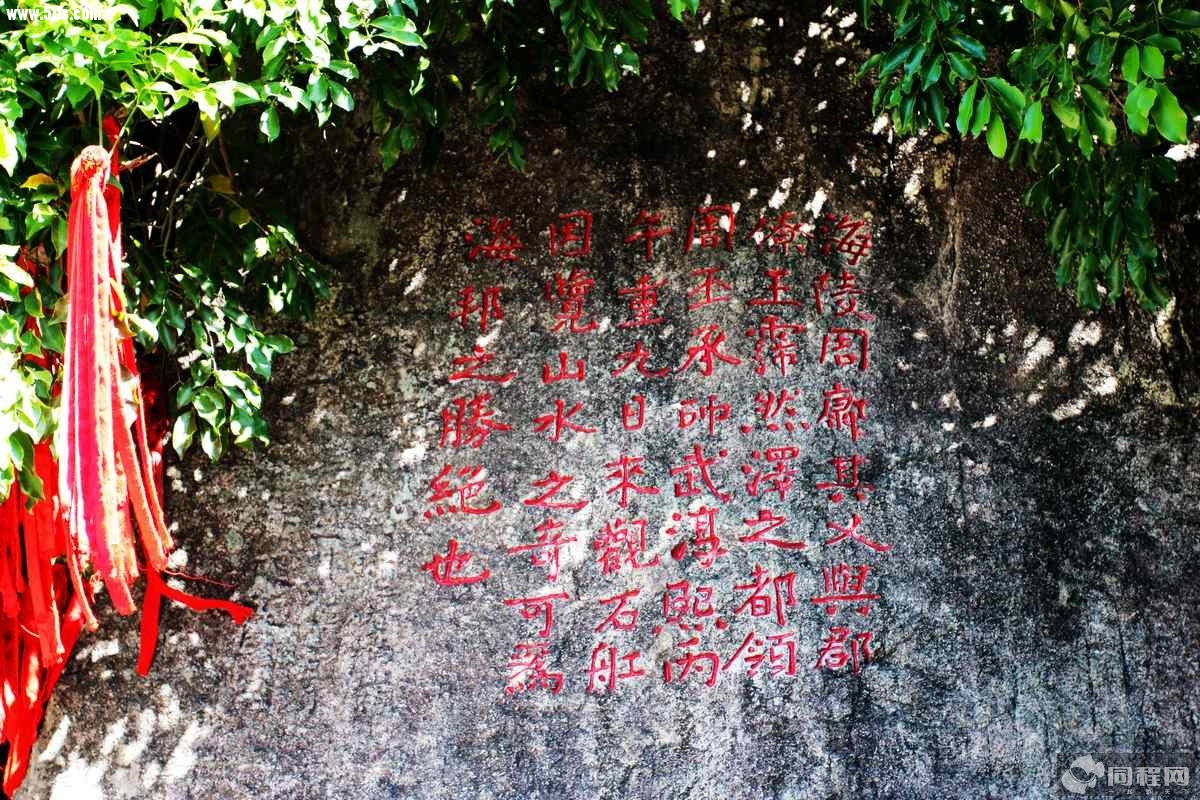 海陵周廓其乂與郡
僚王霈然澤之都領
周丕承師武淳熙丙
午重九日來觀石舡
因覽山水之奇可爲
海邦之勝絕也
同程网